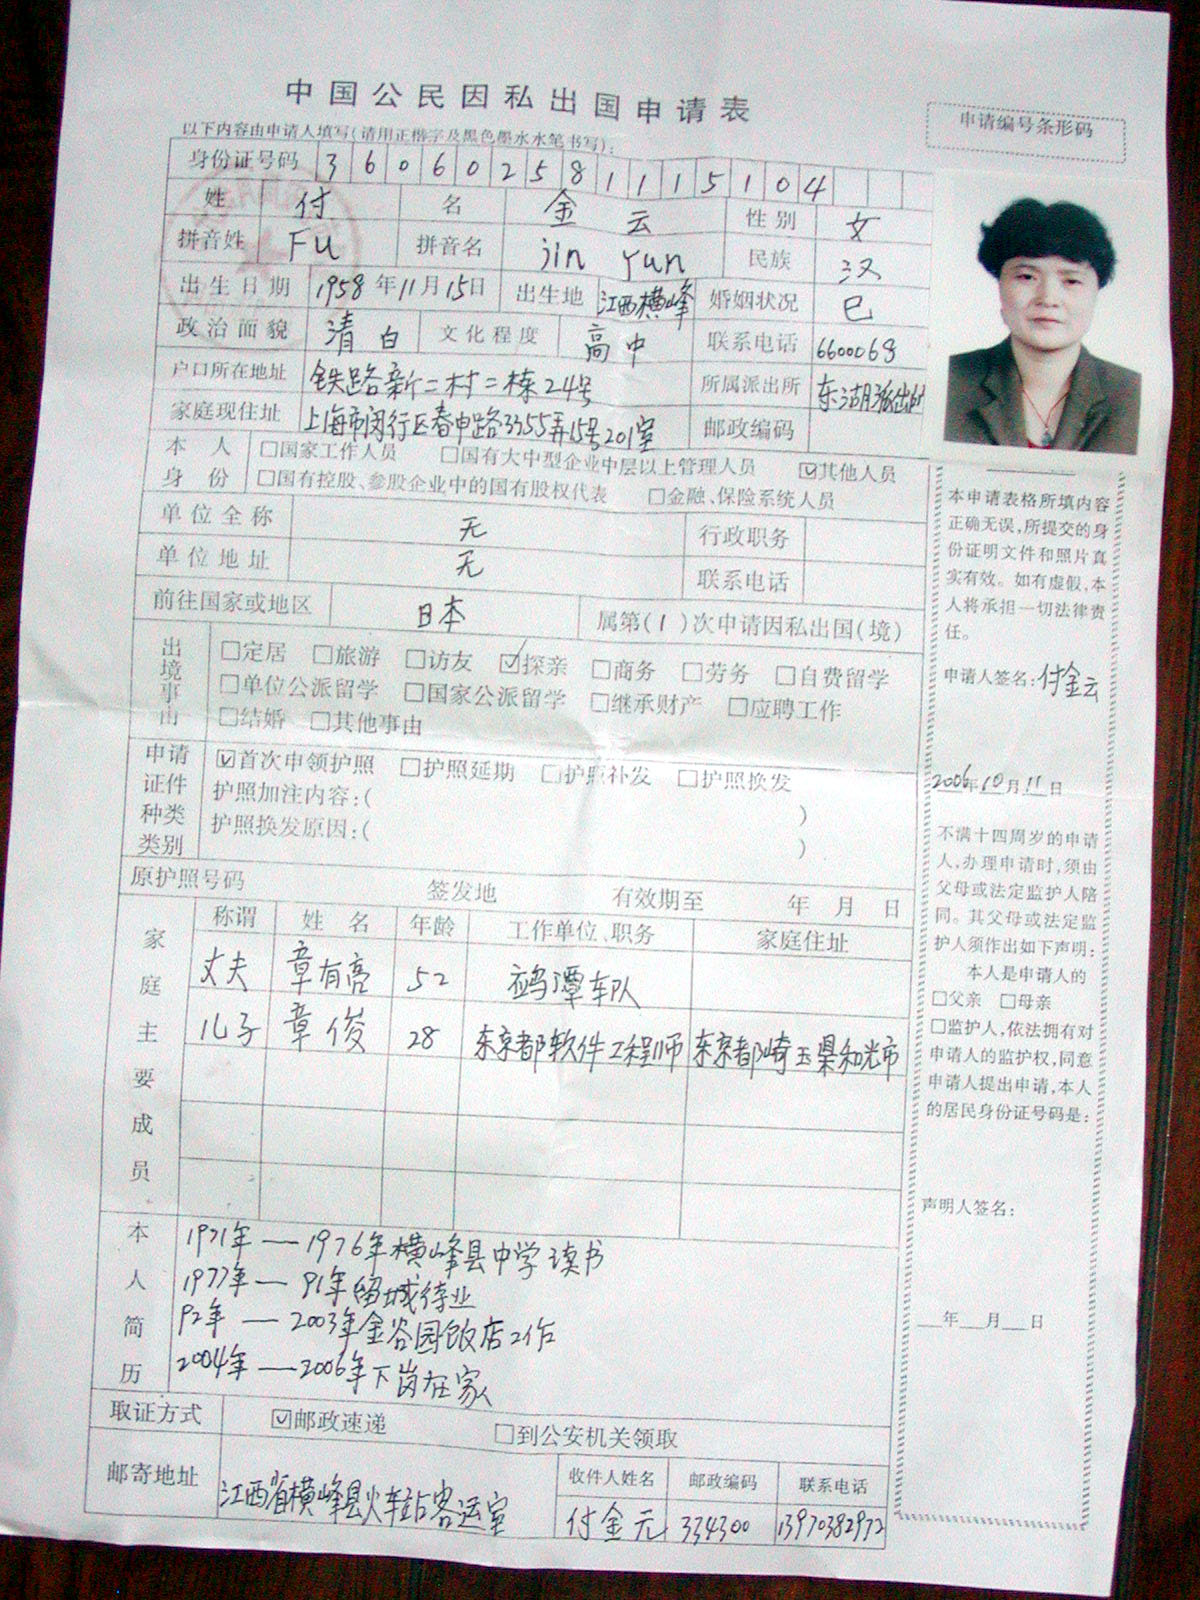 中国公民因私出国申请表
申请编号条形码
以下内容由申请人填写(请用正楷字及黑色墨水水笔书写):
身份证号码 360602581115104
姓 付 名 金云 性别 女
拼音姓 Fu 拼音名 jin Yun 民族 汉
出生日期 1958年11月15日 出生地 江西横峰 婚姻状况 已
政治面貌 清白 文化程度 高中 联系电话 6600068
户口所在地址 铁路新二村二栋24号 所属派出所 东湖派出所
家庭现住址 上海市闵行区春申路3355弄15号201室 邮政编码
本人身份 □国家工作人员 □国有大中型企业中层以上管理人员 ☑其他人员
□国有控股、参股企业中的国有股权代表 □金融、保险系统人员
单位全称 无 行政职务
单位地址 无 联系电话
前往国家或地区 日本 属第(1)次申请因私出国(境)
出境事由 □定居 □旅游 □访友 ☑探亲 □商务 □劳务 □自费留学
□单位公派留学 □国家公派留学 □继承财产 □应聘工作
□结婚 □其他事由
申请证件种类类别 ☑首次申领护照 □护照延期 □护照补发 □护照换发
护照加注内容:( )
护照换发原因:( )
原护照号码 签发地 有效期至 年 月 日
家庭主要成员 称谓 姓名 年龄 工作单位、职务 家庭住址
丈夫 章有亮 52 鹞潭车队
儿子 章俊 28 东京都软件工程师 东京都崎玉県和光市
本人简历
1971年—1976年横峰县中学读书
1977年—91年留城待业
92年—2003年金谷园饭店工作
2004年—2006年下岗在家
取证方式 ☑邮政速递 □到公安机关领取
邮寄地址 江西省横峰县火车站客运室 收件人姓名 邮政编码 联系电话
付金元 334300 13970382972
本申请表格所填内容
正确无误,所提交的身
份证明文件和照片真
实有效。如有虚假,本
人将承担一切法律责
任。
申请人签名:付金云
2006年10月11日
不满十四周岁的申请
人,办理申请时,须由
父母或法定监护人陪
同。其父母或法定监
护人须作出如下声明:
本人是申请人的
□父亲 □母亲
□监护人,依法拥有对
申请人的监护权,同意
申请人提出申请,本人
的居民身份证号码是:
声明人签名:
__年__月__日